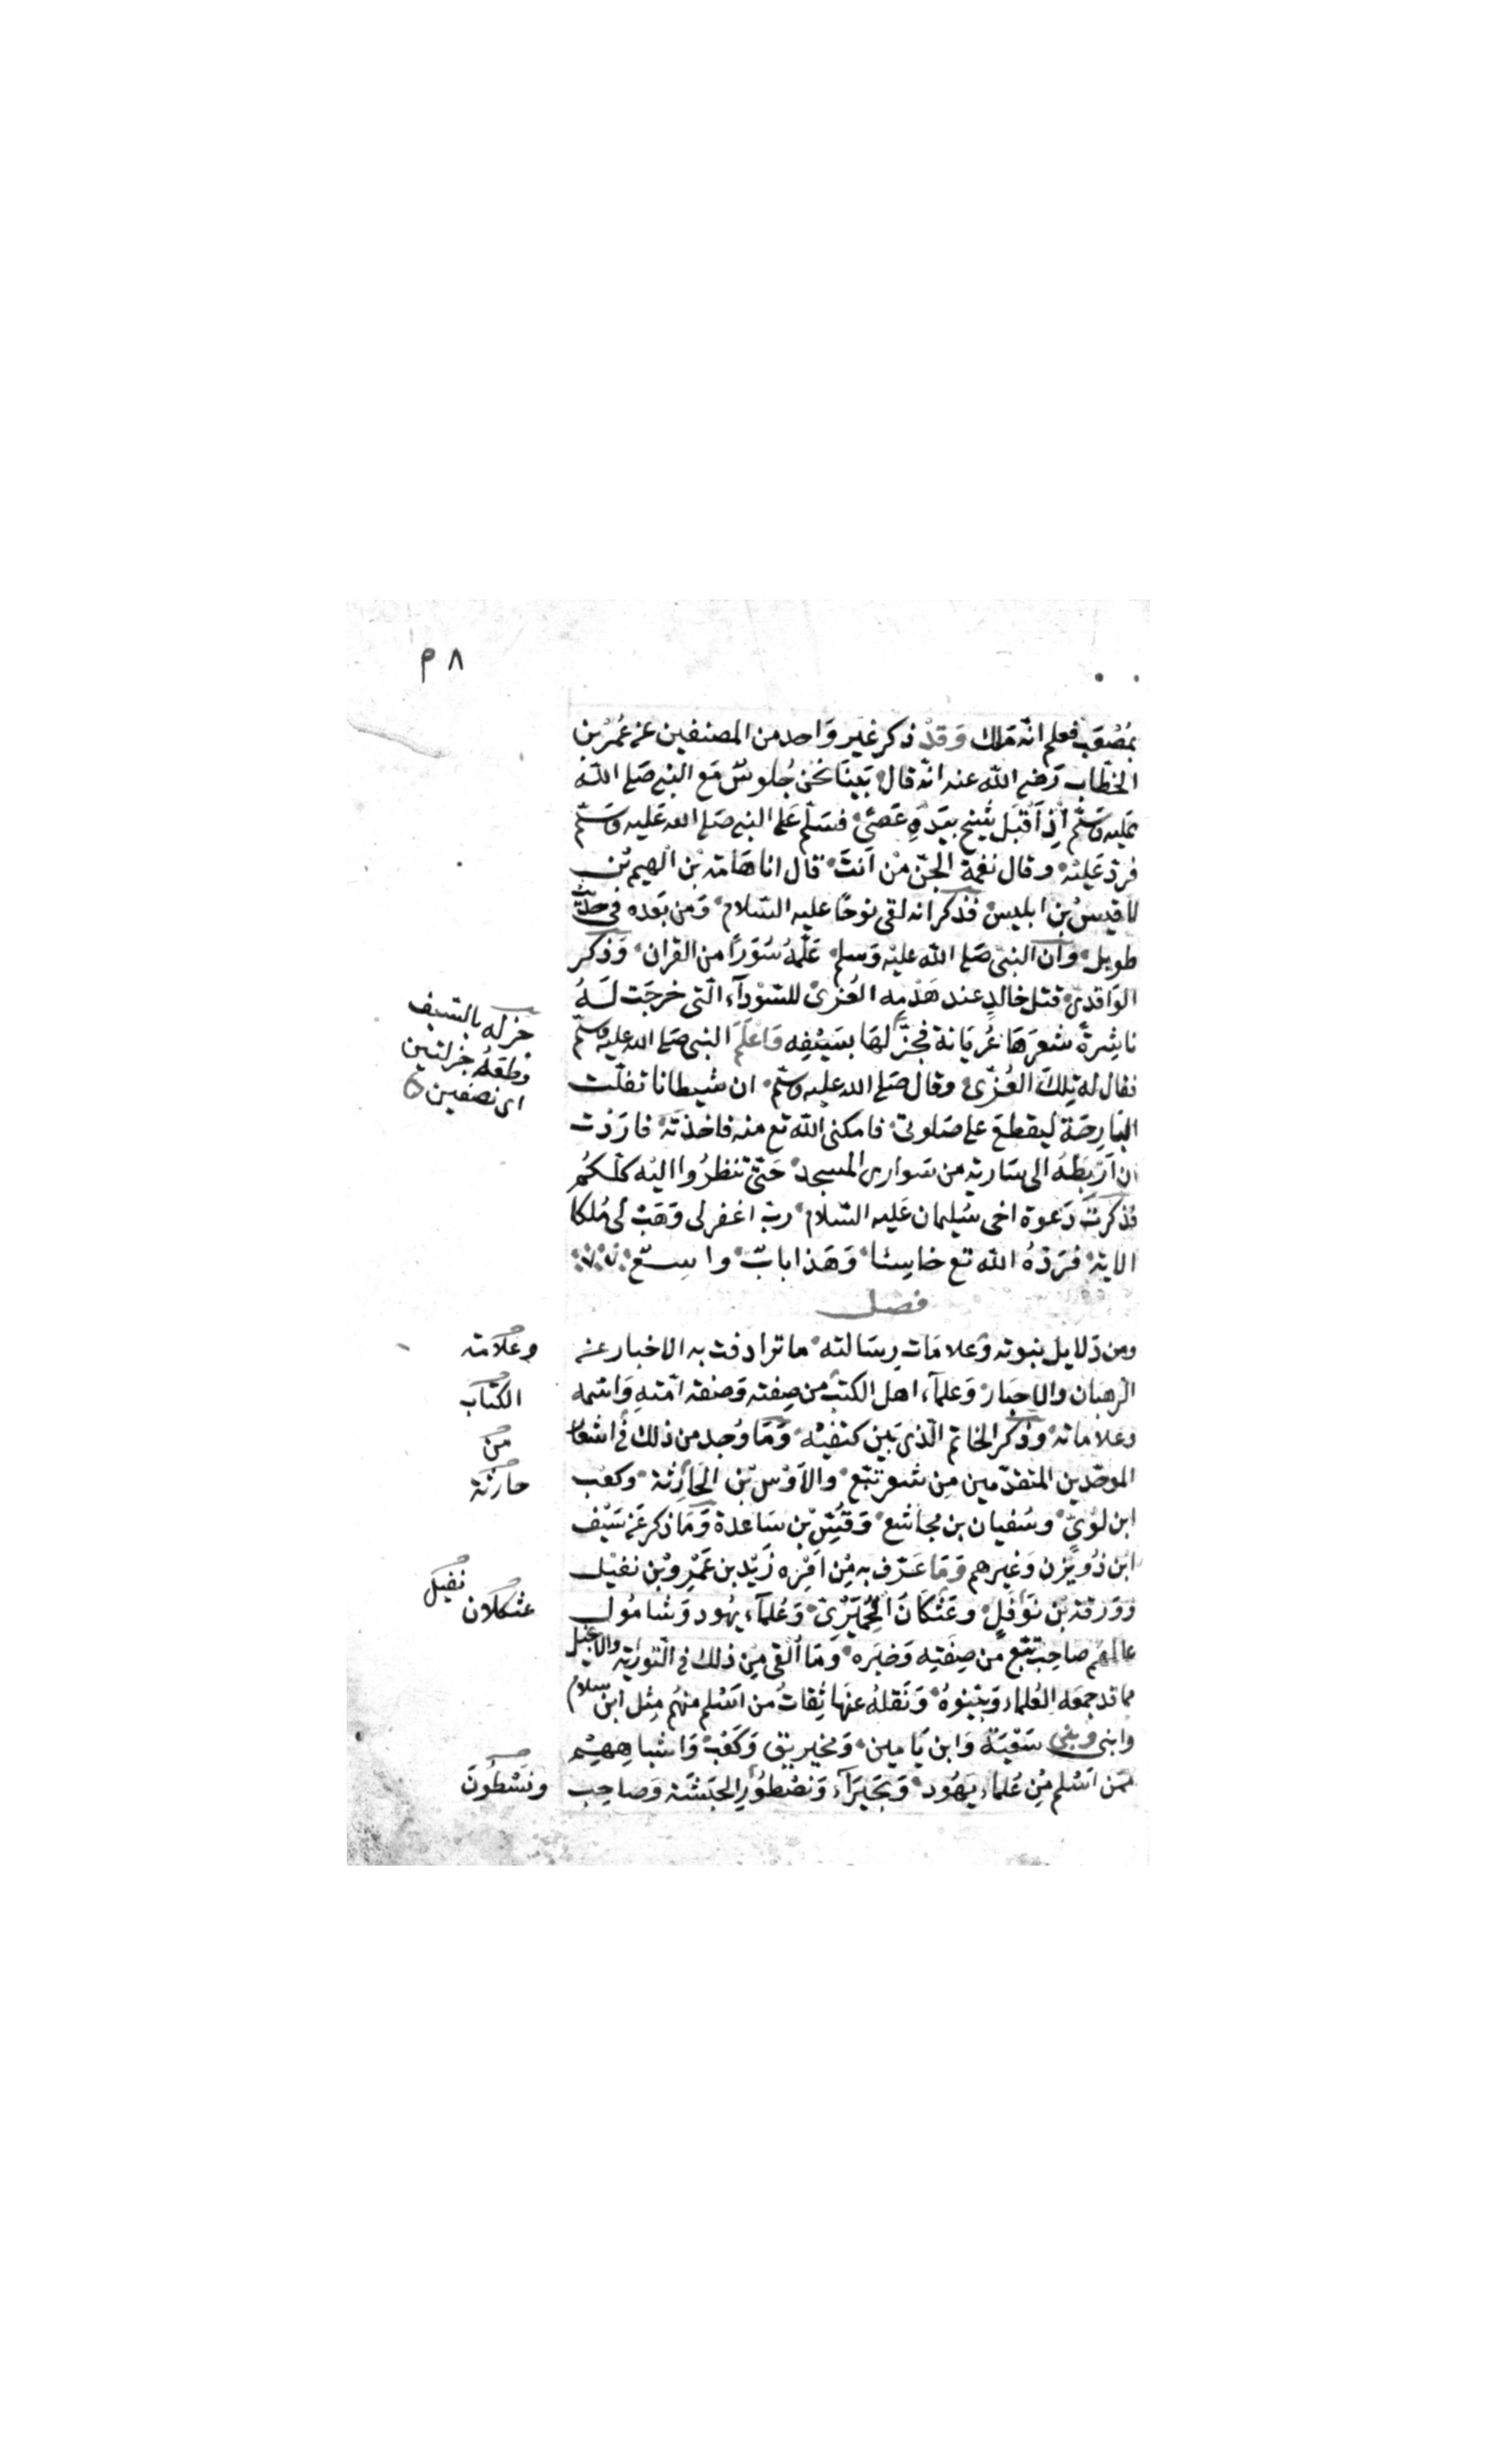 ٨ م
بمُصْعَبٍ فعلم انّه مَلك وَقَدْ ذكر غير وَاحد من المصنفين عن عُمَرْ بن
الخطّاب رَضى اللّه عنه انّه قال بَيْنَا نَحْن جُلوسٌ مَع النبى صَلى اللّه
عَليه وَسَلّم اِذ اَقْبَل شَيْخ بيَدِهِ عَصًى فسَلّم عَلى النبى صَلى الله عَليه وَسَلّم
فردّ عَليْه وقال نغمة الجنّ مَنْ اَنتَ قال انا هَامة بْن الهيم بْن
لاقيسْ بن ابليس فذكر انه لقى نوحًا عليه السّلام وَمن بَعْده فى حديث
طويل وَاَن النبىّ صَلى اللّه عليْه وَسلم عَلّمهُ سُوَرًا من القرآن وَذكر
الوَاقدىّ قتل خالدٍ عند هَدْمِه العُزّىْ للسّوْدآء الّتى خرجَت لَهُ
ناشِرةً شعرَهَا عُريَانة فجزلهَا بسَيْفِه وَاَعْلَمَ النبى صَلى الله عليه وسلّم
فقال له تِلكَ العُزّى وقال صَلى الله عليه وسلّم ان شيطانا تفلّت
البَارِحَة ليقطعَ على صَلوتى فامكننى اللّه تع منه فاخذته فارَدْت
ان اَرْبِطَهُ الى سَارية من سَوارى المسجد حَتّى تنظرُوا اليْه كلّكمْ
فذكرتْ دَعوة اخى سُليمان عَليه السّلام ربّ اغفرلى وَهَبْ لى مُلكا
الاية فرَدّهُ اللّه تع خاسِئا وَهَذا بابٌ واسِعٌ
فصل
ومن دَلايل نبوته وَعلامَات رسَالته ما ترادفت به الاخبار عن
الرّهبان والاحبَار وَعلمآء اهل الكتب من صِفته وَصفة امّته وَاسْمه
وعلاماته وذكر الخاتم الّذى بَين كتفيْه وَمَا وُجد من ذلك فى اشعار
الموحّدين المتقدّمين مِن شعر تبّع والاَوْس بْن الحَارِثة وكعْب
ابن لؤىّ وسُفيان بن مجاشع وَقسّ بْن سَاعدة وَمَا ذكر عَنْ سَيْف
ابْن ذُو يَزَن وَغيرهم وَمَا عَرّف به مِنْ اَمْرِه زَيْد بن عَمْرِو بْن نفيْل
وَوَرقة بْن نَوْفَل وعَثْكَانَ الحِمْيَرىّ وَعُلمآء يهُود وَشامُول
عالمهُم صَاحِب تبّع من صِفَتِه وَخبَره وَمَا اُلفى مِن ذلك فى التّوريٰة والانجيل
مما قد جمعَه العُلماء وَبيّنوهُ وَنَقلهُ عنهَا ثِقاتُ من اَسْلم منهُم مِثل ابن سلام
وابنى وبنى سَعْيَة وَابن يَامين وَمخيريق وَكَعْبْ وَاشباههِمْ
ممّن اَسْلم مِنْ عُلماء يَهُود وَبَحَيرَآء وَنَصْطُوْرِ الحبَشَة وَصاحِب
جزله بالسّيف
وقطعهُ جزلتين
اى نصفين
وعلامته
الكتاب
من
حارثة
نفيل
عثكلان
ونسْطُونَ